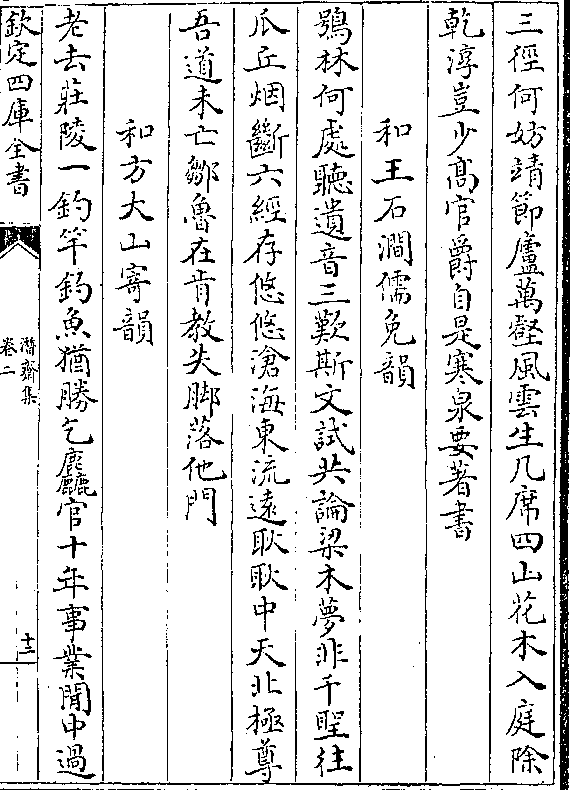 三徑何妨靖節廬萬壑風雲生几席四山花木入庭除
乾淳豈少髙官爵自是寒泉要著書
和王石澗儒免韻
鴞林何處聽遺音三歎斯文試共論梁木夢非千聖往
瓜丘烟斷六經存悠悠滄海東流遠耿耿中天北極尊
吾道未亡鄒魯在肯教失脚落他門
和方大山寄韻
老去莊陵一釣竿釣魚猶勝乞麤官十年事業閒中過
欽定四庫全書
潛齋集
卷二
十二